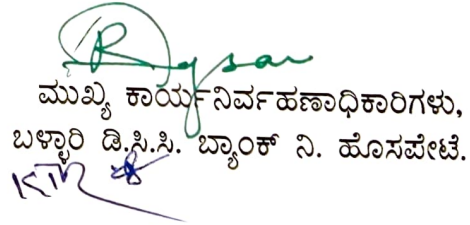 ಮುಖ್ಯ ಕಾರ್ಯನಿರ್ವಹಣಾಧಿಕಾರಿಗಳು,
ಬಳ್ಳಾರಿ ಡಿ.ಸಿ.ಸಿ. ಬ್ಯಾಂಕ್ ನಿ. ಹೊಸಪೇಟೆ.